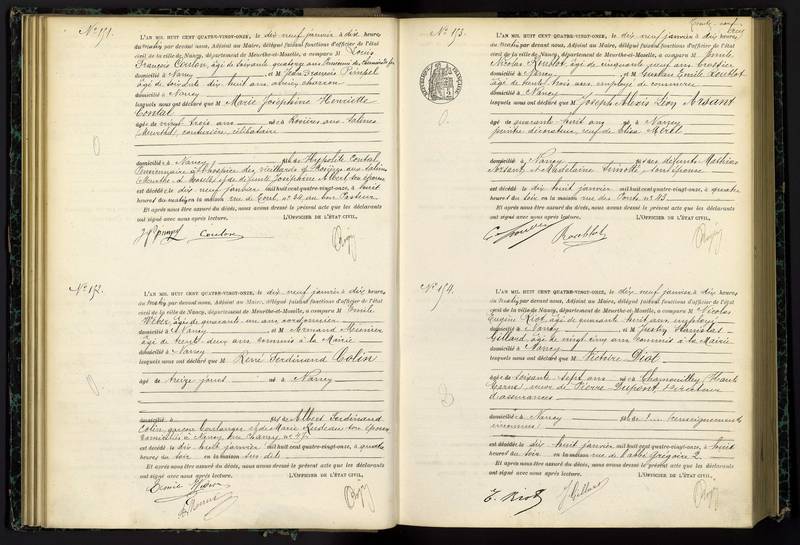 N° 151.
L'AN MIL HUIT CENT QUATRE-VINGT-ONZE, le dix neuf janvier à dix heures
du matin par devant nous, Adjoint au Maire, délégué faisant fonctions d'officier de l'état
civil de la ville de Nancy, département de Meurthe-et-Moselle, a comparu M Louis
François Couton, âgé de soixante quatorze ans
domicilié à Nancy et M Jean François Pimpel
âgé de soixante dix huit ans, charron
domicilié à Nancy
lesquels nous ont déclaré que M Marie Joséphine Henriette
Contal
âgée de vingt trois ans née à Rosières aux Salines
Meurthe, couturière, célibataire
domicilié à Nancy fille de Hyppolite Contal
Pensionnaire à l'hospice des vieillards de Rosières aux Salines
(Meurthe et Moselle) et de défunte Joséphine Albert son épouse
est décédée le dix neuf janvier mil huit cent quatre-vingt-onze, à huit
heures du matin en la maison rue de Toul n° 44, au bon Pasteur
Et après nous être assuré du décès, nous avons dressé le présent acte que les déclarants
ont signé avec nous après lecture. L'OFFICIER DE L'ÉTAT CIVIL,
Couton
N° 152.
L'AN MIL HUIT CENT QUATRE-VINGT-ONZE, le dix-neuf janvier à dix heures
du matin par devant nous, Adjoint au Maire, délégué faisant fonctions d'officier de l'état
civil de la ville de Nancy, département de Meurthe-et-Moselle, a comparu M Emile
Weber, âgé de quarante un ans cordonnier
domicilié à Nancy et M Armand Meunier
âgé de trente deux ans commis à la Mairie
domicilié à Nancy
lesquels nous ont déclaré que M René Ferdinand Colin
âgé de treize jours né à Nancy
domicilié à fils de Albert Ferdinand
Colin, garçon boulanger et de Marie son épouse
domiciliés à Nancy
est décédé le dix-huit janvier mil huit cent quatre-vingt-onze, à quatre
heures du soir en la maison sus dite
Et après nous être assuré du décès, nous avons dressé le présent acte que les déclarants
ont signé avec nous après lecture. L'OFFICIER DE L'ÉTAT CIVIL,
N° 153.
L'AN MIL HUIT CENT QUATRE-VINGT-ONZE, le dix neuf janvier à dix heures
du matin par devant nous, Adjoint au Maire, délégué faisant fonctions d'officier de l'état
civil de la ville de Nancy, département de Meurthe-et-Moselle, a comparu M
Nicolas Roublot, âgé de cinquante neuf ans
domicilié à Nancy et M Gustave Emile Roublot
âgé de trente trois ans, employé de commerce
domicilié à Nancy
lesquels nous ont déclaré que M Joseph Alexis Léon Arsant
âgé de quarante huit ans né à Nancy
peintre décorateur, veuf de Elisa
domicilié à Nancy fils des défunts Mathias
Arsant et Madelaine son épouse
est décédé le dix huit janvier mil huit cent quatre-vingt-onze, à quatre
heures du soir en la maison rue des Ponts n° 43
Et après nous être assuré du décès, nous avons dressé le présent acte que les déclarants
ont signé avec nous après lecture. L'OFFICIER DE L'ÉTAT CIVIL,
Roublot
N° 154.
L'AN MIL HUIT CENT QUATRE-VINGT-ONZE, le dix neuf janvier à dix heures
du matin par devant nous, Adjoint au Maire, délégué faisant fonctions d'officier de l'état
civil de la ville de Nancy, département de Meurthe-et-Moselle, a comparu M Nicolas
Eugène Riot, âgé de quarante huit ans, employé
domicilié à Nancy et M Justin Stanislas
Gillard, âgé de vingt cinq ans commis à la Mairie
domicilié à Nancy
lesquels nous ont déclaré que M Victoire Diot
âgée de soixante sept ans née à Chamouilley (Haute
Marne), veuve de Pierre Dupont, Directeur
d'assurances
domicilié à Nancy fille de ... renseignements
inconnus
est décédée le dix huit janvier mil huit cent quatre-vingt-onze, à huit
heures du soir en la maison rue de l'abbé Grégoire 2
Et après nous être assuré du décès, nous avons dressé le présent acte que les déclarants
ont signé avec nous après lecture. L'OFFICIER DE L'ÉTAT CIVIL,
E. Riot J. Gillard